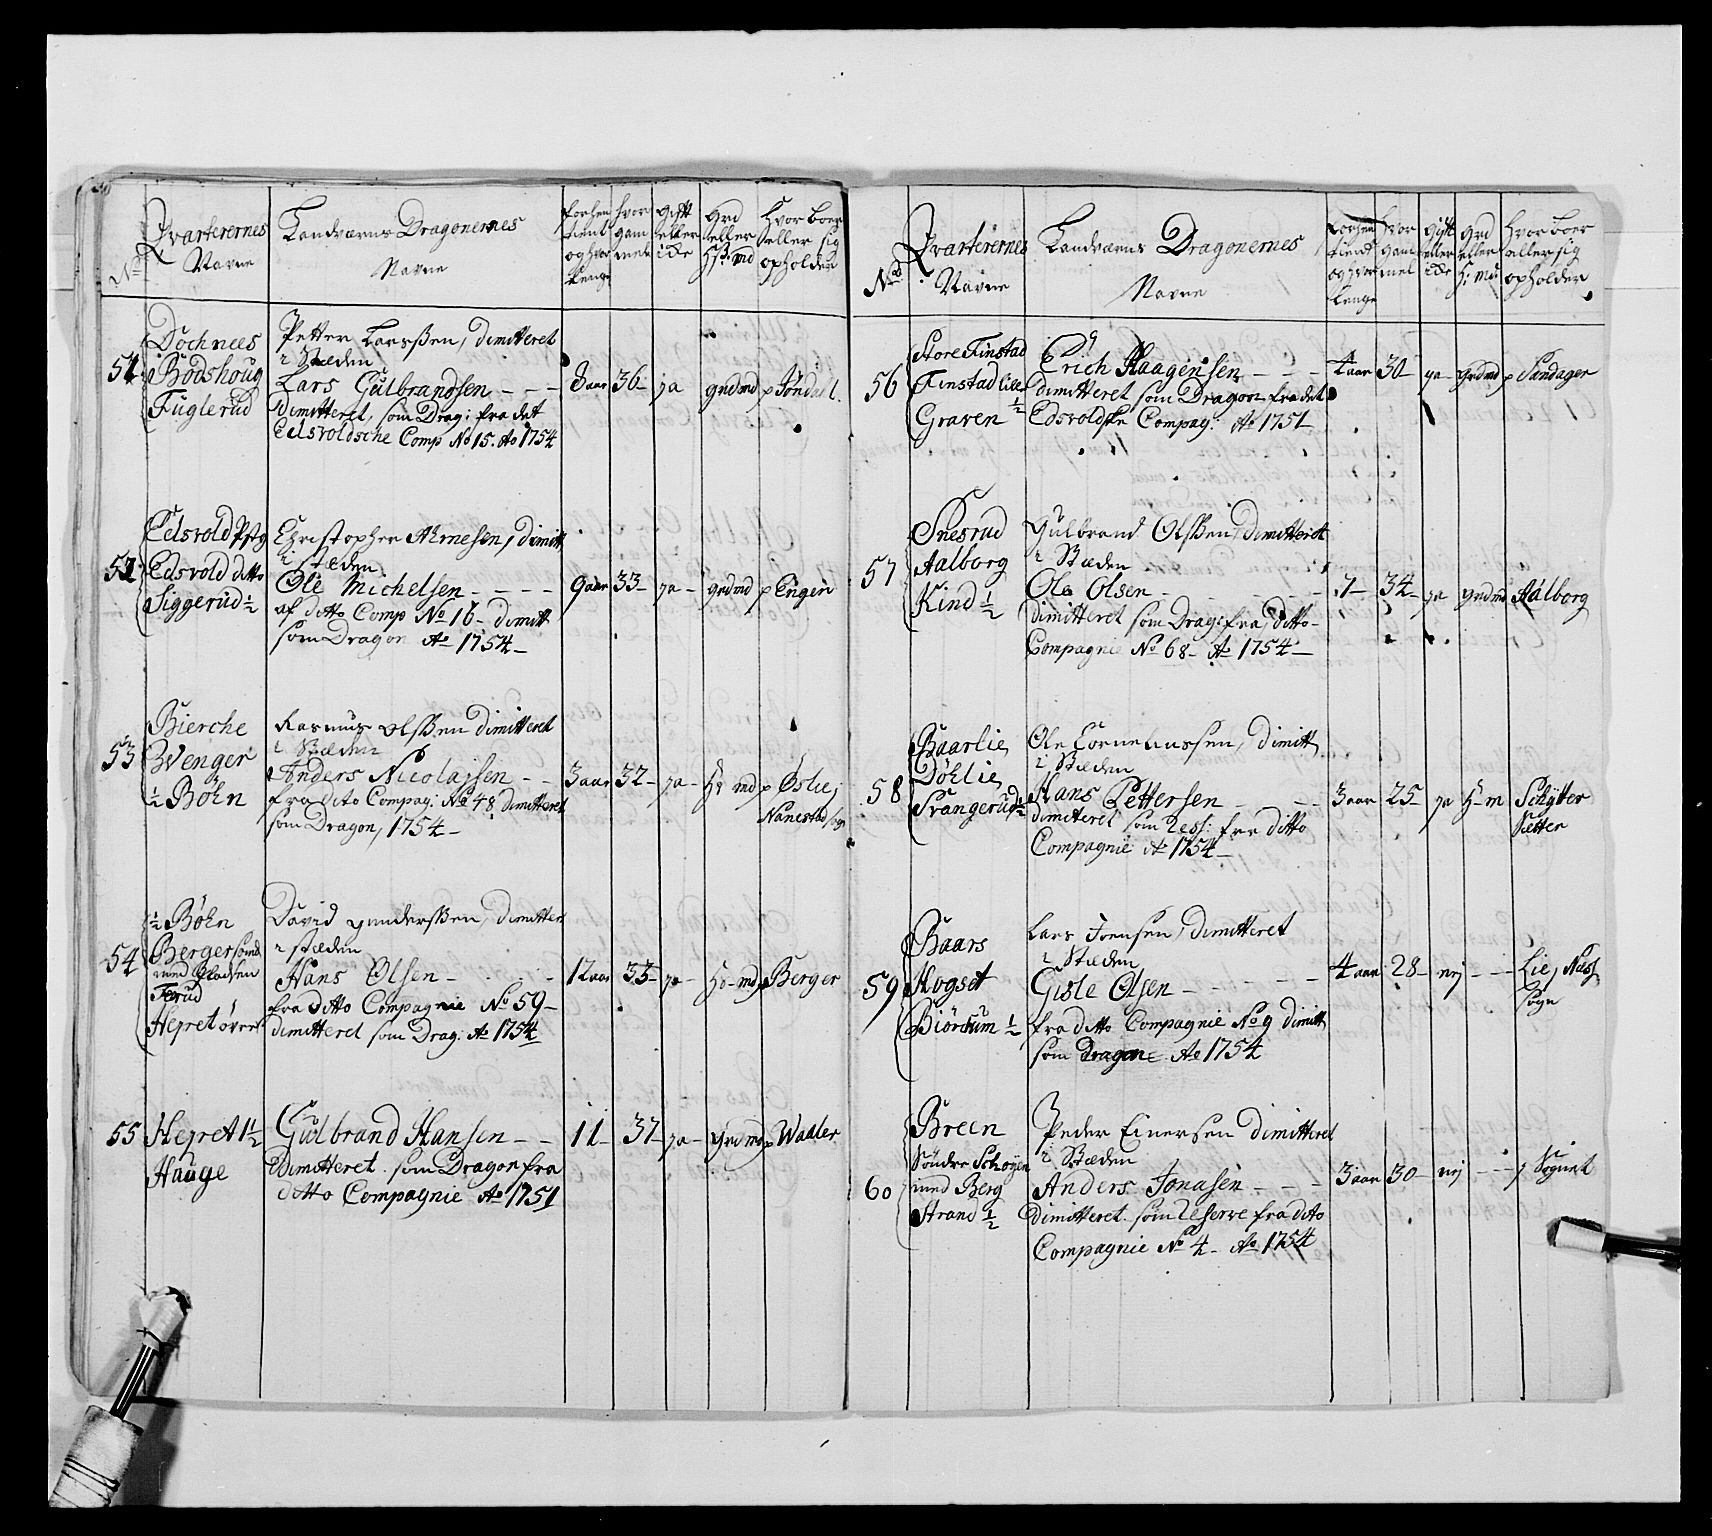 No
Qvarterernes
Navne
Landværns Dragonernes
Navne
forhen
tient
og hvor
Lenge
hvor
gam
mel
gift
eller
ide
Grd
eller
Hsmd
hvor boer
eller sig
opholder
51
Dochnees
Bødshoug
Fuglerud
Petter Larsßen, dimitteret
i Stæden
Lars Gulbrandsen - - -
dimitteret som Drag: fra det
Edsvoldsche Comp No 15. Ao 1754
8 aar 36 - ja grdmd p Jøndal.
52
Edsvold Pstg
Edsvold ditto
Siggerud ½
Christopher Arnesen, dimitt
i stæden
Ole Michelsen - - - -
af ditto Comp No 16 - dimitt
som Dragon Ao 1754 -
9 aar 33 - ja - grdmd p Engen
53
Bierche
Wenger
½ Bøhn
Rasmus Olsßen dimitteret
i Stæden
Anders Nicolajsen - -
fra dito Compag: No 48 dimitteret
som Dragon, 1754 -
3 aar 32 - ja - Hs md p Østlie,
Nanestad sogn
54
½ Bøhn
Berger
med Pladsen
Terud
Hepret øvre
David gundersßen, dimitter
i stæden
Hans Olsen - - - -
fra ditto Compagnie No 59 -
dimitteret som Drag: Ao 1754
12 aar 33 - ja - Hs - md p Berger
55
Hepret 1½
Hauge
Gulbrand Hansen - -
Dimitteret som Dragon fra
ditto Compagnie Ao 1751
11 - 37 - ja - grdmd p Waaler
No
Qvarterernes
Navne
Landværns Dragonernes
Navne
forhen
tient
og hvor
lenge
hvor
gam
mel
gift
eller
ide
Grd
eller
H: md
hvor boer
eller sig
opholder
56
Store Finstad
Finstad lille
Graven ½
Erich Haagensen - - -
dimitteret som Dragon fra det
Edsvoldske Compag: Ao 1751
4 aar 30 - ja - grdmd p Sandager
57
Snesrud
Aalborg
Kind ½
Gulbrand Olsßen, dimitteret
i Stæden
Ole Olsen - - - - -
dimitteret som Drag: fra ditto -
Compagnie No 68 - Ao 1754 -
7 - 34 - ja grdmd Aalborg
58
Baarlie
Døhlie
Svangerud ½
Ole Cornelussen, dimitt
i Stæden
Hans Pettersen - - -
dimitteret som Res: fra ditto
Compagnie Ao 1754 -
3 aar 25 - ja H - m Schytter
Sætter
59
Baars
Hogset
Biørtum ½
Lars Joensen, dimitteret
i Stæden
Gisle Olsen - - - - -
fra ditto Compagnie No 9 dimitt
som Dragon Ao 1754
4 aar 28 - nej - - - Lie, Nass
sogn
60
Breen
Søndre Schøyen
med Berg
Strand ½
Peder Einersen dimitteret
i Stæden
Anders Jonasen - - -
dimitteret som Reserve fra dito
Compagnie No 4 - Ao 1754
3 aar 30 - nej - - - p Sognet